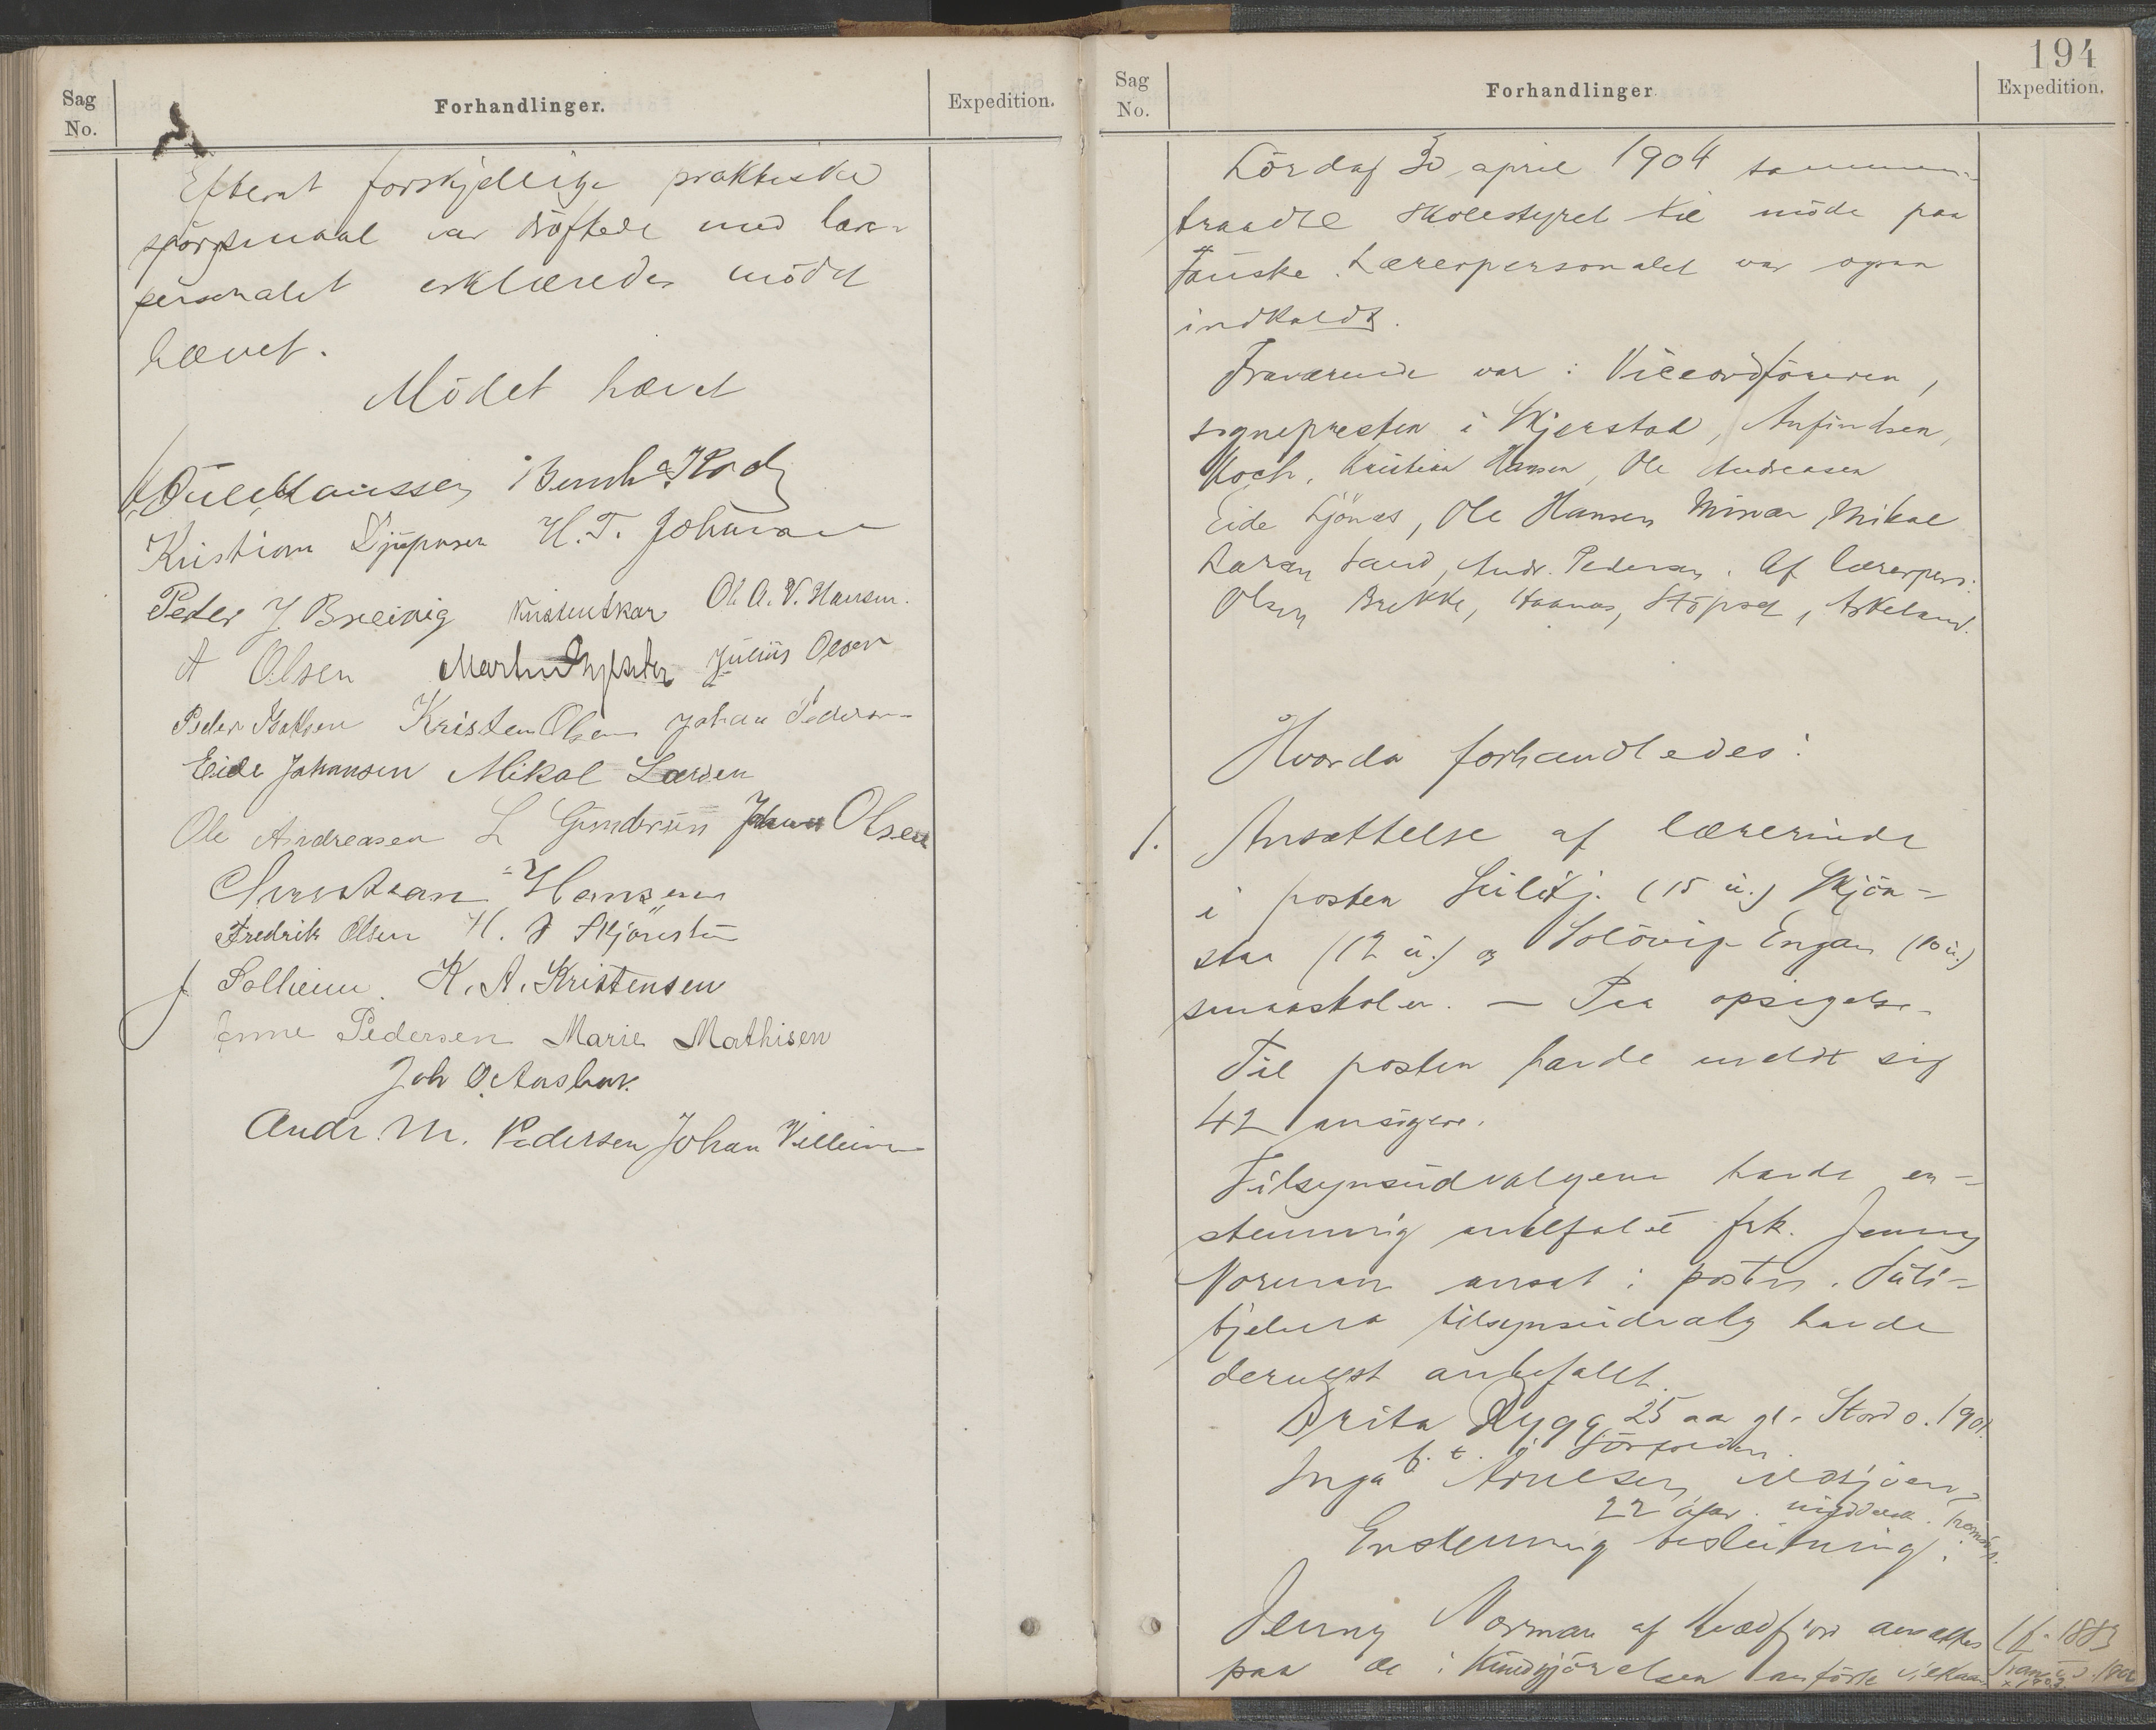 Sag
No.
Forhandlinger.
Expedition.
Efterat forskjellige praktiske
spörgsmaal var dröftede med lærer
personalet erklæredes mödet
hævet.
Mödet hævet
Kristian H. T. Johnsen
Peder J Breivig Ole A. V. Hansen.
A Olsen Martin Julius Olsen
Peder Kristen Olsen Johan Pedersen
Eide Johansen Mikal Larsen
Ole Andreasen L Gundersen Johan Olsen
Christian Hansen
Fredrik Olsen H.
J Sollieim. K. A. Kristensen
Anne Pedersen Marie Mathisen
Joh
Andr. M. Pedersen Johan
194
Sag
No.
Forhandlinger
Expedition.
Lördag 30 april 1904 sammen-
traadte skolestyret til möde paa
Fauske. Lærerpersonalet var ogsaa
indkaldt.
Fraværende var: Viceordföreren,
sognepresten i Skjerstad, Anfindsen,
Koch, Kristian Hansen, Ole Andreasen
Eide Ole Hansen Mikal
Larsen Andr. Pedersen. Af lærerpers.
Olsen Brekke, Askeland.
Hvorda forhandledes:
1. Ansættelse af lærerinde
i posten Sulitj. (15 u.) Skjön-
staa (12 u.) og Solövig Engan (10 u.)
smaaskoler. — Paa opsigelse.
Til posten havde meldt sig
42 ansögere.
Tilsynsudvalgene havde en-
stemmig anbefalet frk. Jenny
Norman ansat i posten. Suli-
tjelma tilsynsudvalg havde
dernæst anbefalet
Brita Rygg 25 aa gl. Stord o. 1901.
f. t.
Inga
22 aar
Enstemmig beslutning:
Jenny Norman af Kvædfjord ansættes
paa de i Kundgjörelsen anförte vilkaar
f. 1883